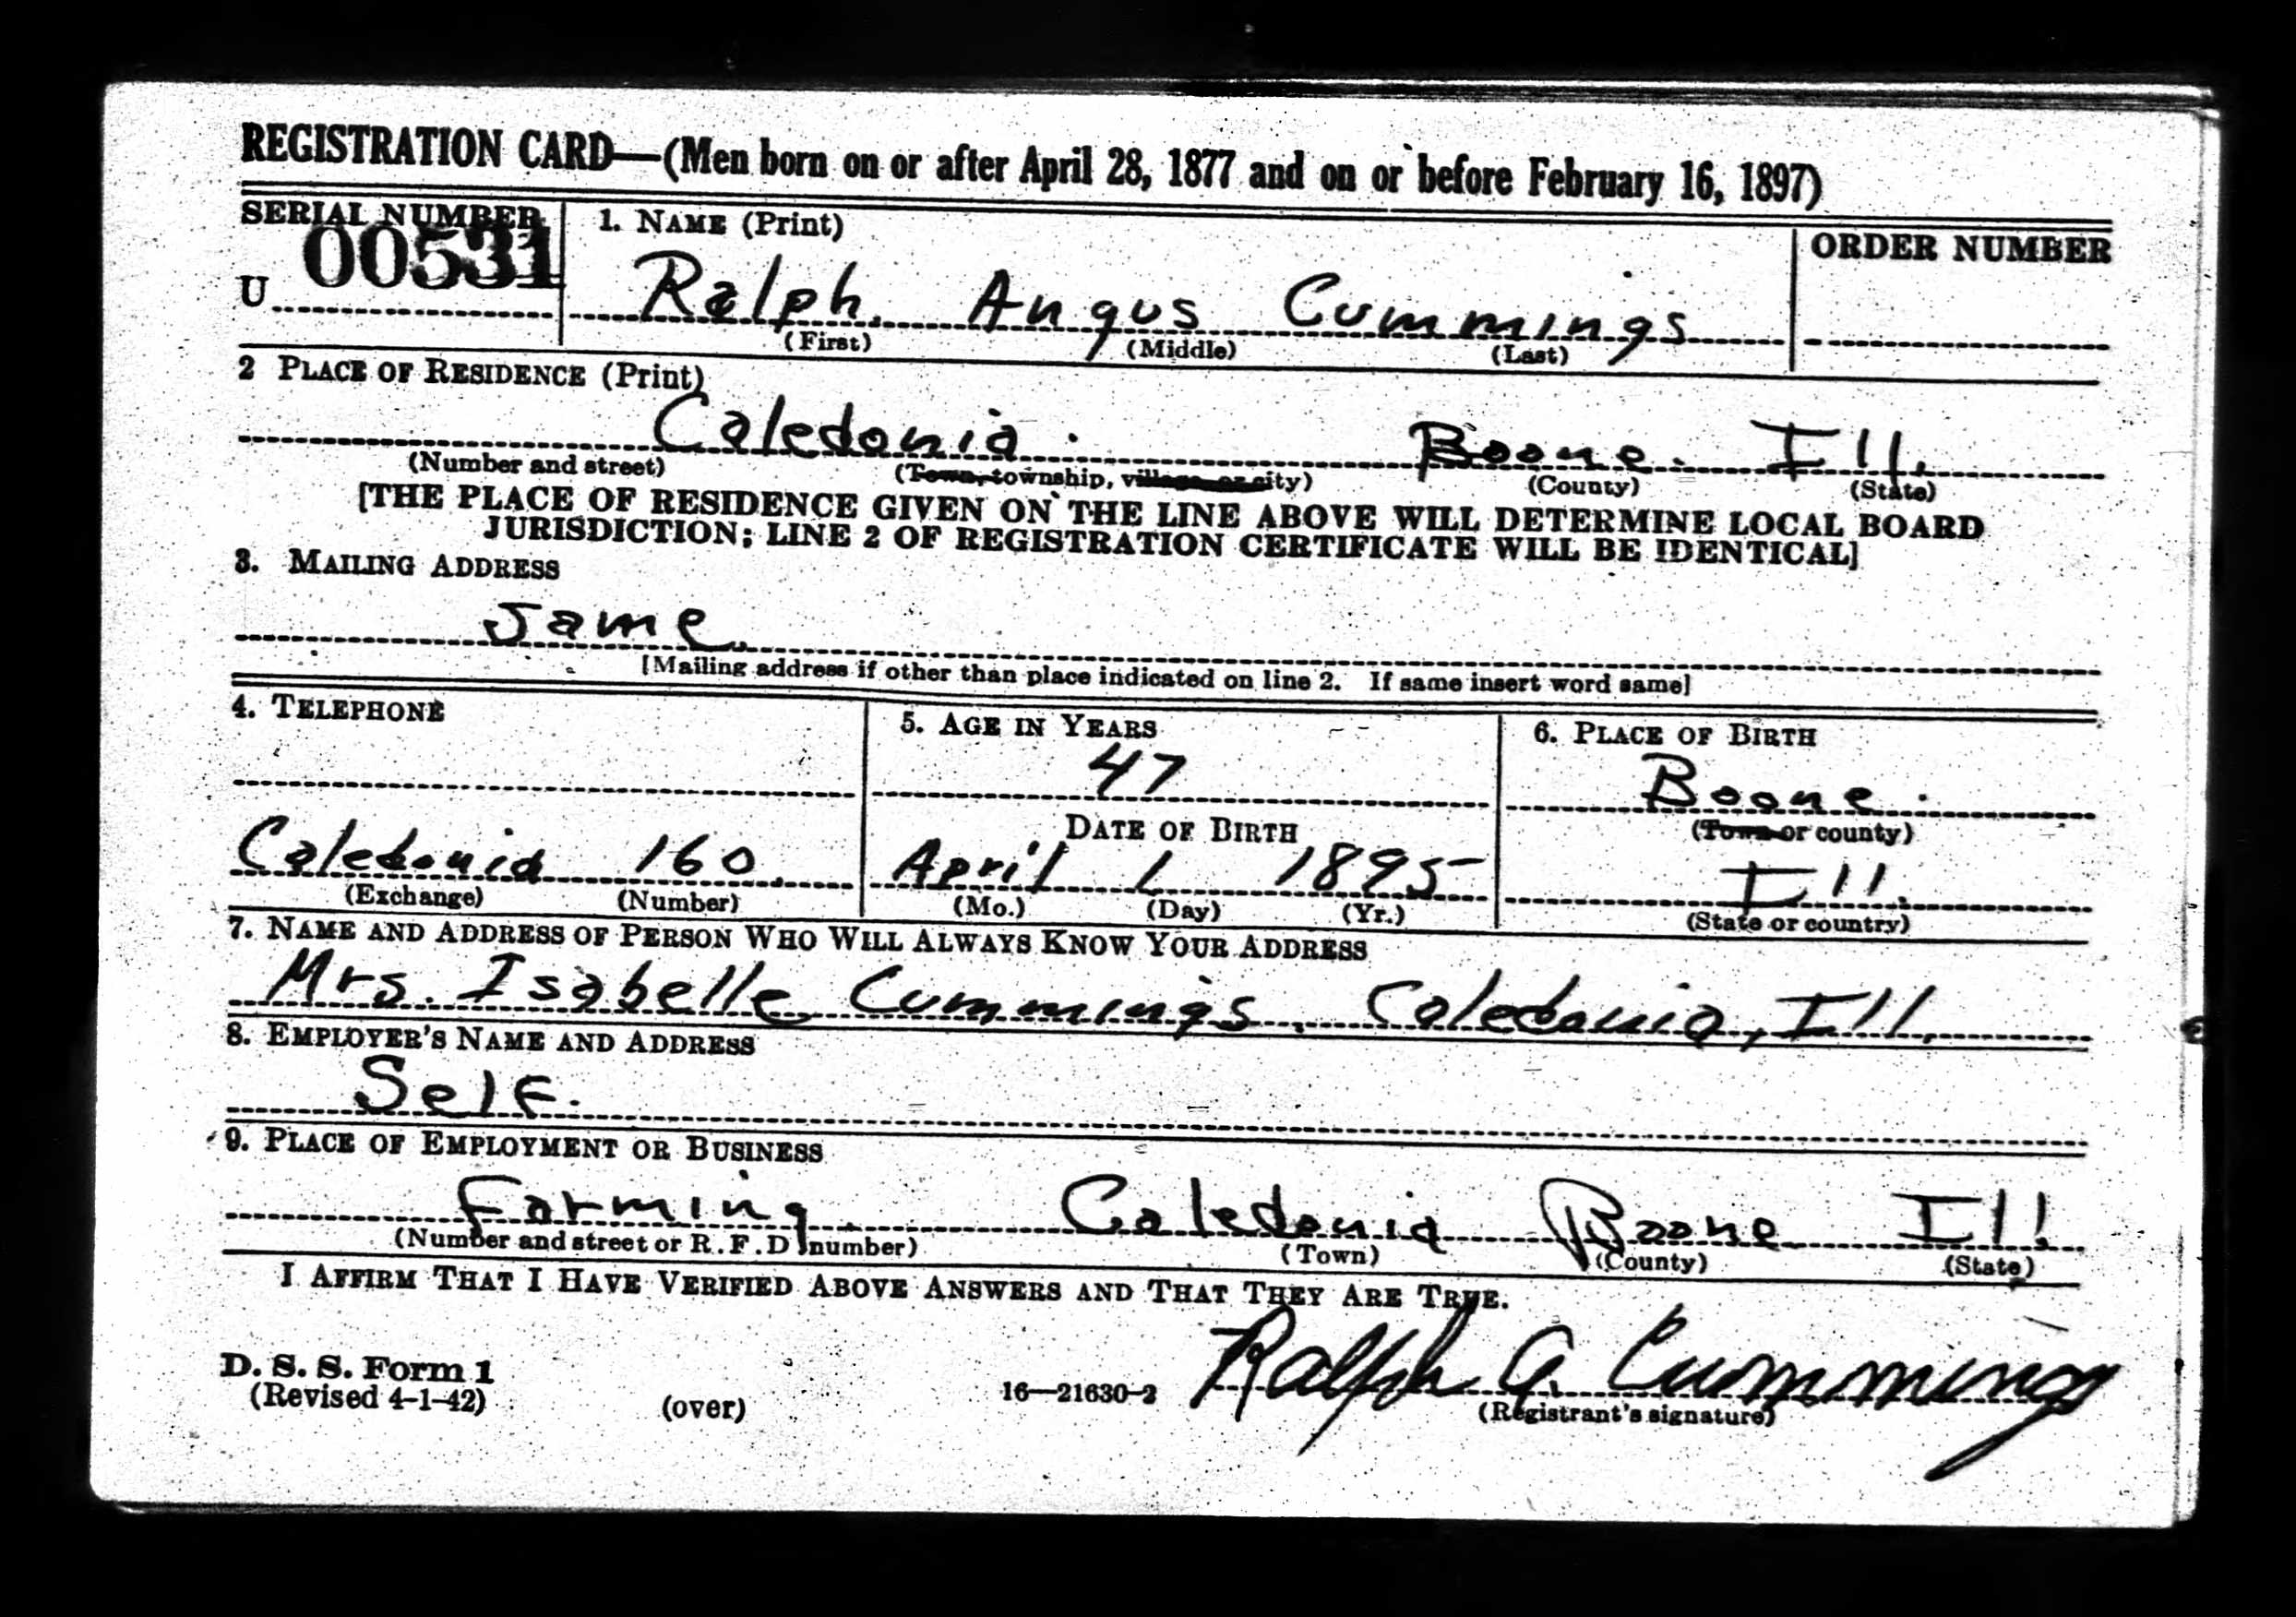 REGISTRATION CARD—(Men born on or after April 28, 1877 and on or before February 16, 1897)
SERIAL NUMBER 1. NAME (Print) ORDER NUMBER
U 00531 Ralph. Angus Cummings
(First) (Middle) (Last)
2 PLACE OF RESIDENCE (Print)
Caledonia. Boone. Ill.
(Number and street) (Town, township, village or city) (County) (State)
[THE PLACE OF RESIDENCE GIVEN ON THE LINE ABOVE WILL DETERMINE LOCAL BOARD
JURISDICTION; LINE 2 OF REGISTRATION CERTIFICATE WILL BE IDENTICAL]
3. MAILING ADDRESS
Same.
[Mailing address if other than place indicated on line 2. If same insert word same]
4. TELEPHONE 5. AGE IN YEARS 6. PLACE OF BIRTH
47 Boone.
DATE OF BIRTH (Town or county)
Caledonia 160. April 1 1895 Ill.
(Exchange) (Number) (Mo.) (Day) (Yr.) (State or country)
7. NAME AND ADDRESS OF PERSON WHO WILL ALWAYS KNOW YOUR ADDRESS
Mrs. Isabelle Cummings. Caledonia, Ill.
8. EMPLOYER'S NAME AND ADDRESS
Self.
9. PLACE OF EMPLOYMENT OR BUSINESS
Farming. Caledonia Boone Ill
(Number and street or R.F.D number) (Town) (County) (State)
I AFFIRM THAT I HAVE VERIFIED ABOVE ANSWERS AND THAT THEY ARE TRUE.
Ralph A. Cummings
D. S. S. Form 1
(Revised 4-1-42) (over) 16—21630-2 (Registrant's signature)